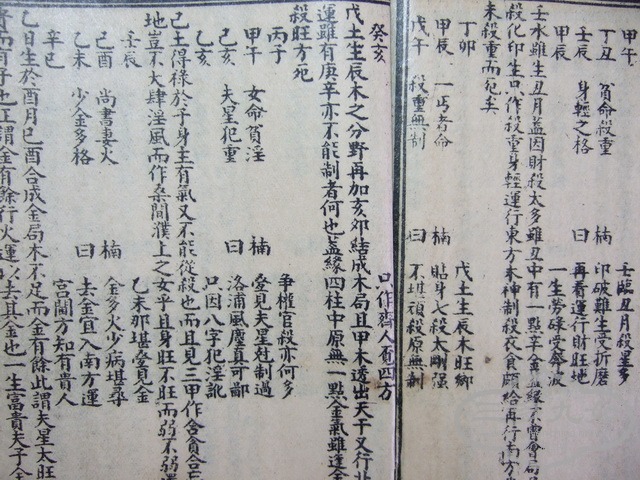 甲午 壬臨丑月殺星多
丁丑 貧命殺重 楠 印破難生受折磨
壬辰 身輕之格 曰 再看運行財旺地
甲辰 一生勞碌受奔波
壬水雖生丑月蓋因財殺太多雖丑中有一點辛金蓋緣不曾會
殺化印生只作殺重身輕運行東方木神制殺衣食頗給再行南方
未殺重而死矣
丁卯 戊土生辰木旺鄉
甲辰 一丐者命 楠 貼身七殺太剛强
戊午 殺重無制 曰 不堪頑殺原無制
癸亥 只作齊人乞四方
戊土生辰木之分野再加亥卯結成木局且甲木透出天干又行北
運雖有庚辛亦不能制者何也蓋緣四柱中原無一點金氣雖逢金
殺旺方
丙子 爭權官殺亦何多
甲午 女命貧淫 楠 愛見夫星尅制過
己亥 夫星犯重 曰 洛浦風塵真可鄙
乙亥 只因八字犯淫訛
己土得祿於午身主有氣又不能從殺也而且見三甲作合貪合忘
地豈不大肆淫風而作桑間濮上之女乎且身旺不旺而弱不弱運
壬辰 乙未那堪疊見金
己酉 尚書妻火 楠 金多火少病堪尋
乙未 少金多格 曰 去金宜入南方運
辛巳 宫闈方知有貴人
乙日生於酉月巳酉合成金局木不足而金有餘此謂夫星太旺
貴而有子也正謂金有餘行火運以去其金也一生富貴夫子全